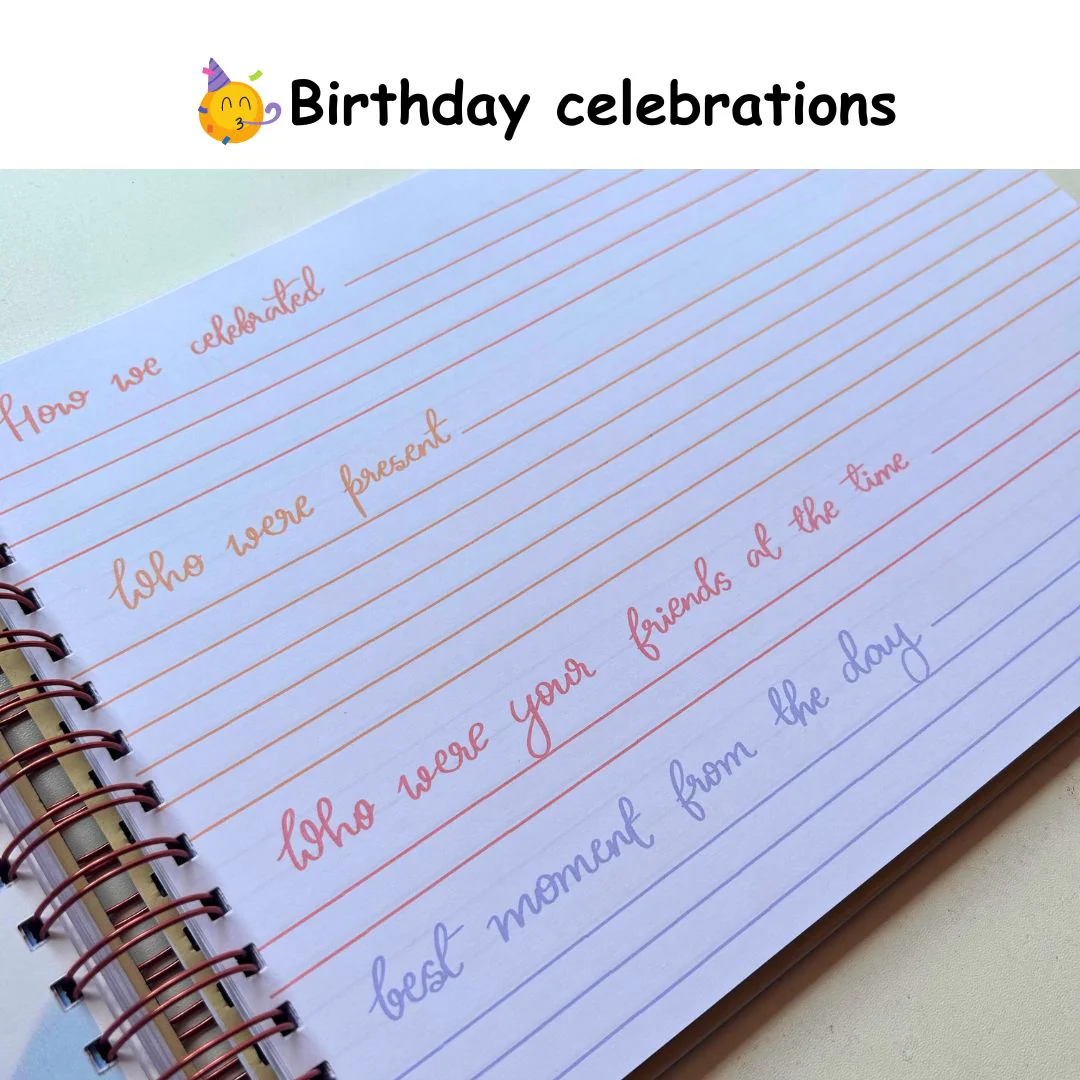 Birthday celebrations
How we celebrated
Who were present
Who were your friends at the time
best moment from the day